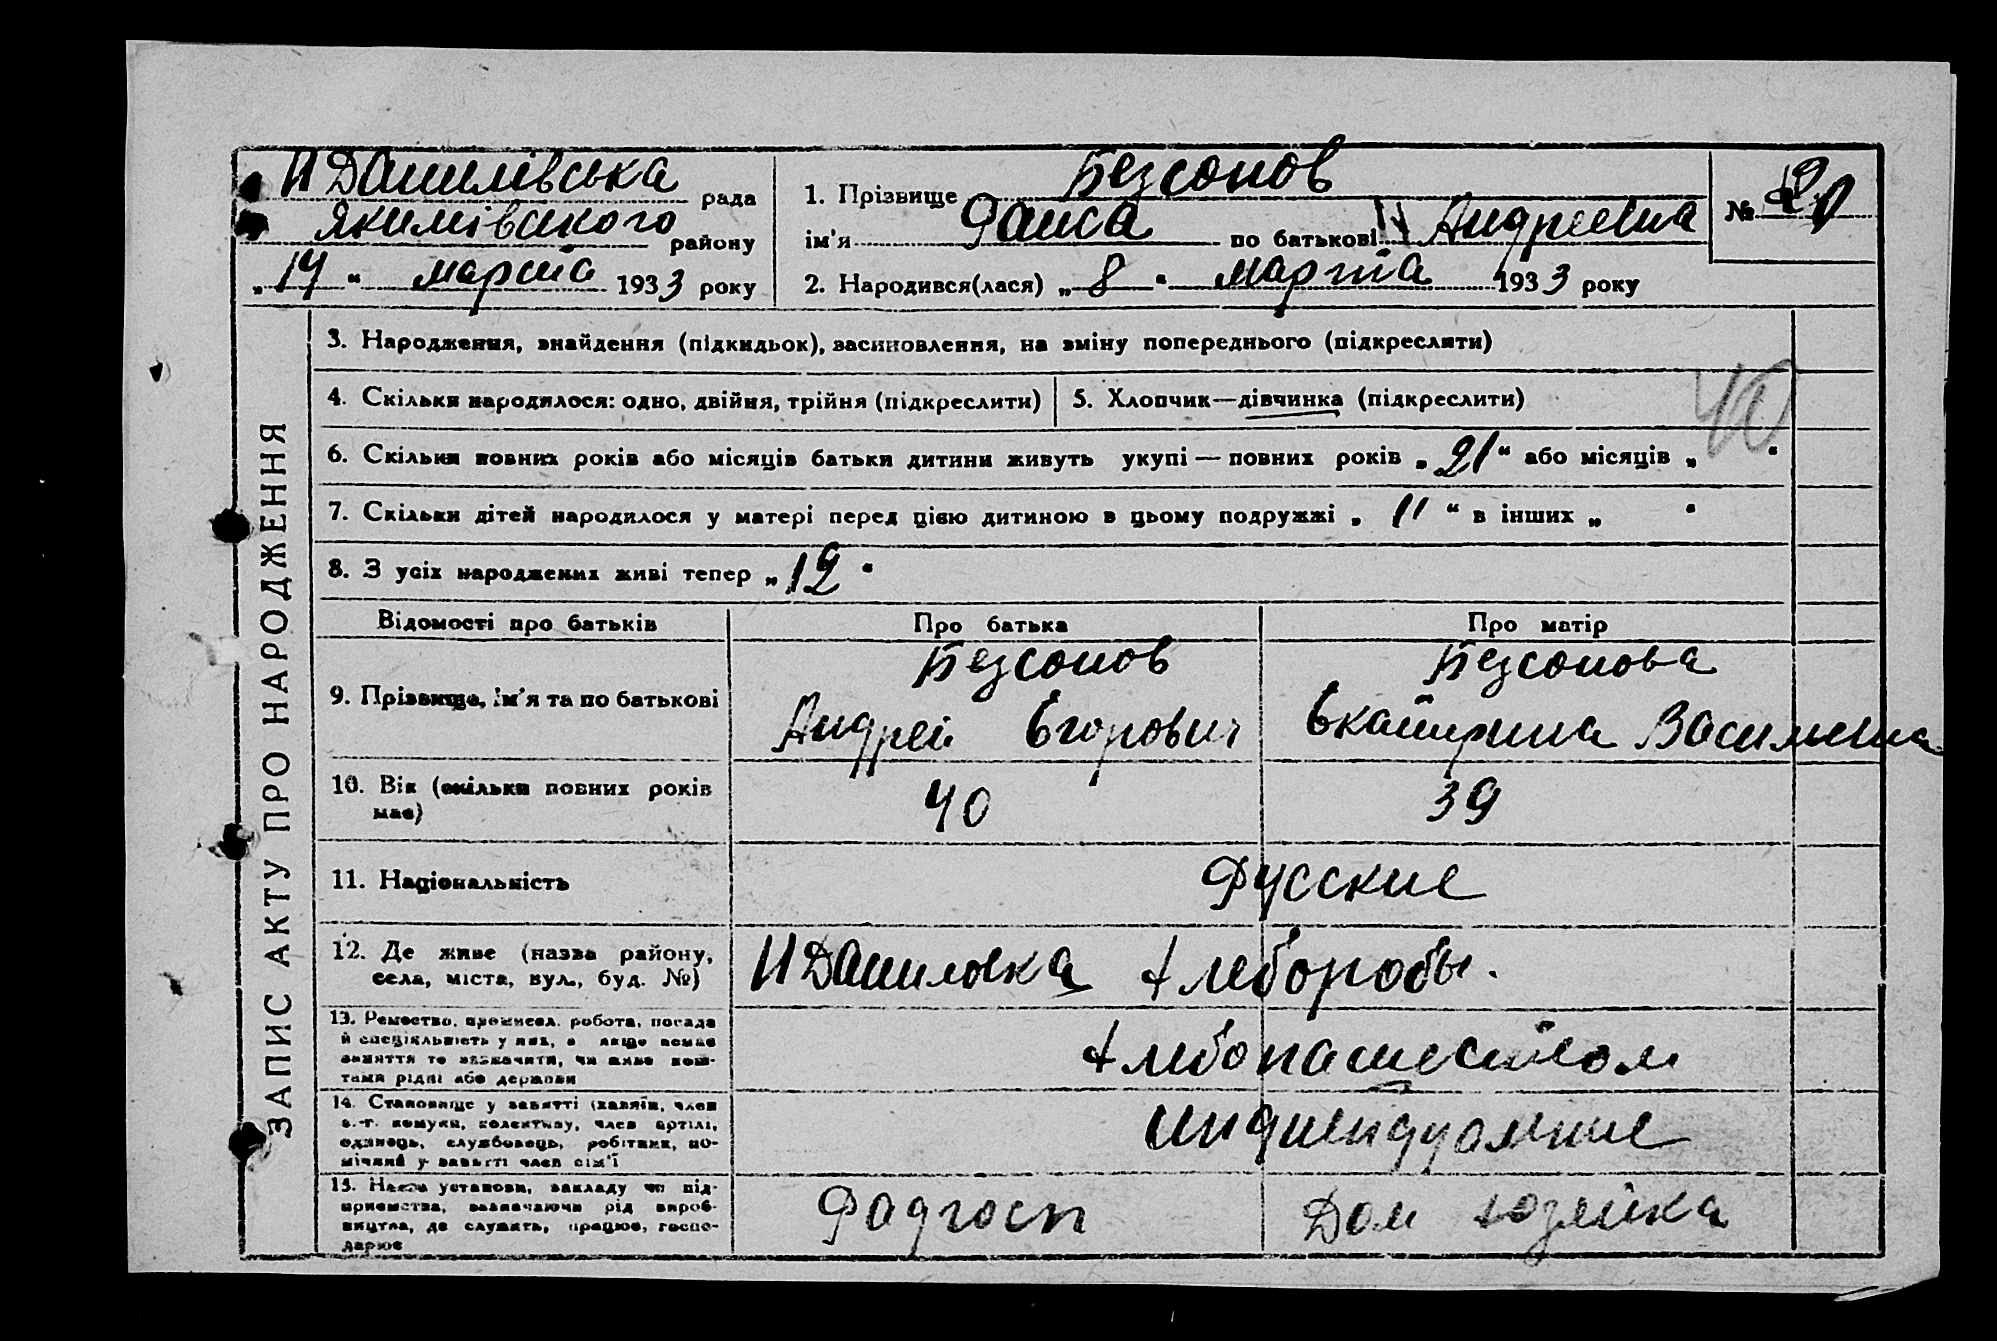 И Данилівська рада
Якимівського району
„ 14 “ марта 1933 року
1. Прізвище Безсонов
ім'я Раиса по батькові Андреевна
2. Народився(лася) „ 8 “ марта 1933 року
№ 20
ЗАПИС АКТУ ПРО НАРОДЖЕННЯ
3. Народження, знайдення (підкидьок), засиновлення, на зміну попереднього (підкреслити)
4. Скільки народилося: одно, двійня, трійня (підкреслити)
5. Хлопчик—дівчинка (підкреслити)
6. Скільки повних років або місяців батьки дитини живуть укупі — повних років „ 21 “ або місяців „ “
7. Скільки дітей народилося у матері перед цією дитиною в цьому подружжі „ 11 “ в інших „ “
8. З усіх народжених живі тепер „ 12 “
Відомості про батьків
Про батька
Про матір
9. Прізвище, ім'я та по батькові
Безсонов
Андрей Егорович
Безсонова
Екатирина Васильевна
10. Вік (скільки повних років
має)
40
39
11. Національність
Русские
12. Де живе (назва району,
села, міста, вул., буд. №)
И Даниловка хлеборобы.
13. Ремество, промисел, робота, посада
й спеціяльність у них, а якщо немає
заняття то зазначити, чи живе кош-
тами рідні або держави
Хлебопашеством
14. Становище у занятті (хазяїн, член
с.-г. комуни, колективу, член артілі,
одинець, службовець, робітник, по-
мічний у занятті член сім'ї
индивидуальные
15. Назва установи, закладу чи під-
приємства, зазначаючи рід вироб-
ництва, де служить, працює, госпо-
дарює
Радгосп
Дом хозяйка